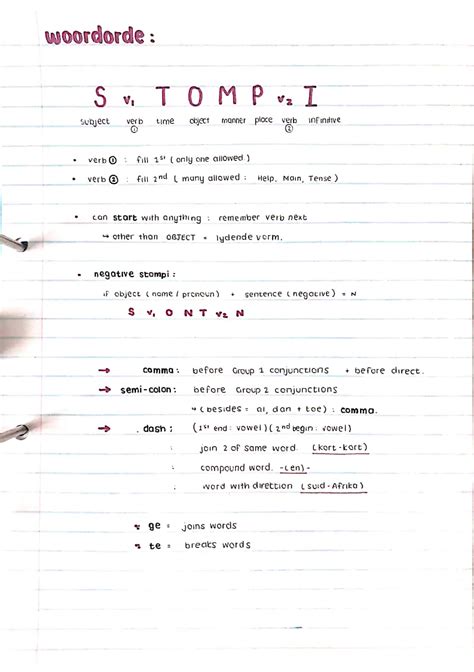 woordorde :
S v1 T O M P v2 I
subject verb ① time object manner place verb ② infinitive
• verb ① : fill 1st ( only one allowed )
• verb ② : fill 2nd ( many allowed : Help, Main, Tense )
• can start with anything : remember verb next
↳ other than OBJECT = lydende vorm.
• negative stompi :
if object ( name / pronoun ) + sentence ( negative ) = N
S v1 O N T v2 N
→ comma : before Group 1 conjunctions + before direct.
→ semi-colon : before Group 2 conjunctions
↳ ( besides = al, dan + toe ) : comma.
→ dash : (1st end : vowel) ( 2nd begin : vowel)
: join 2 of same word. (kort-kort)
: compound word. -(en)-
: word with direction (suid-Afrika)
ge = joins words
te = breaks words